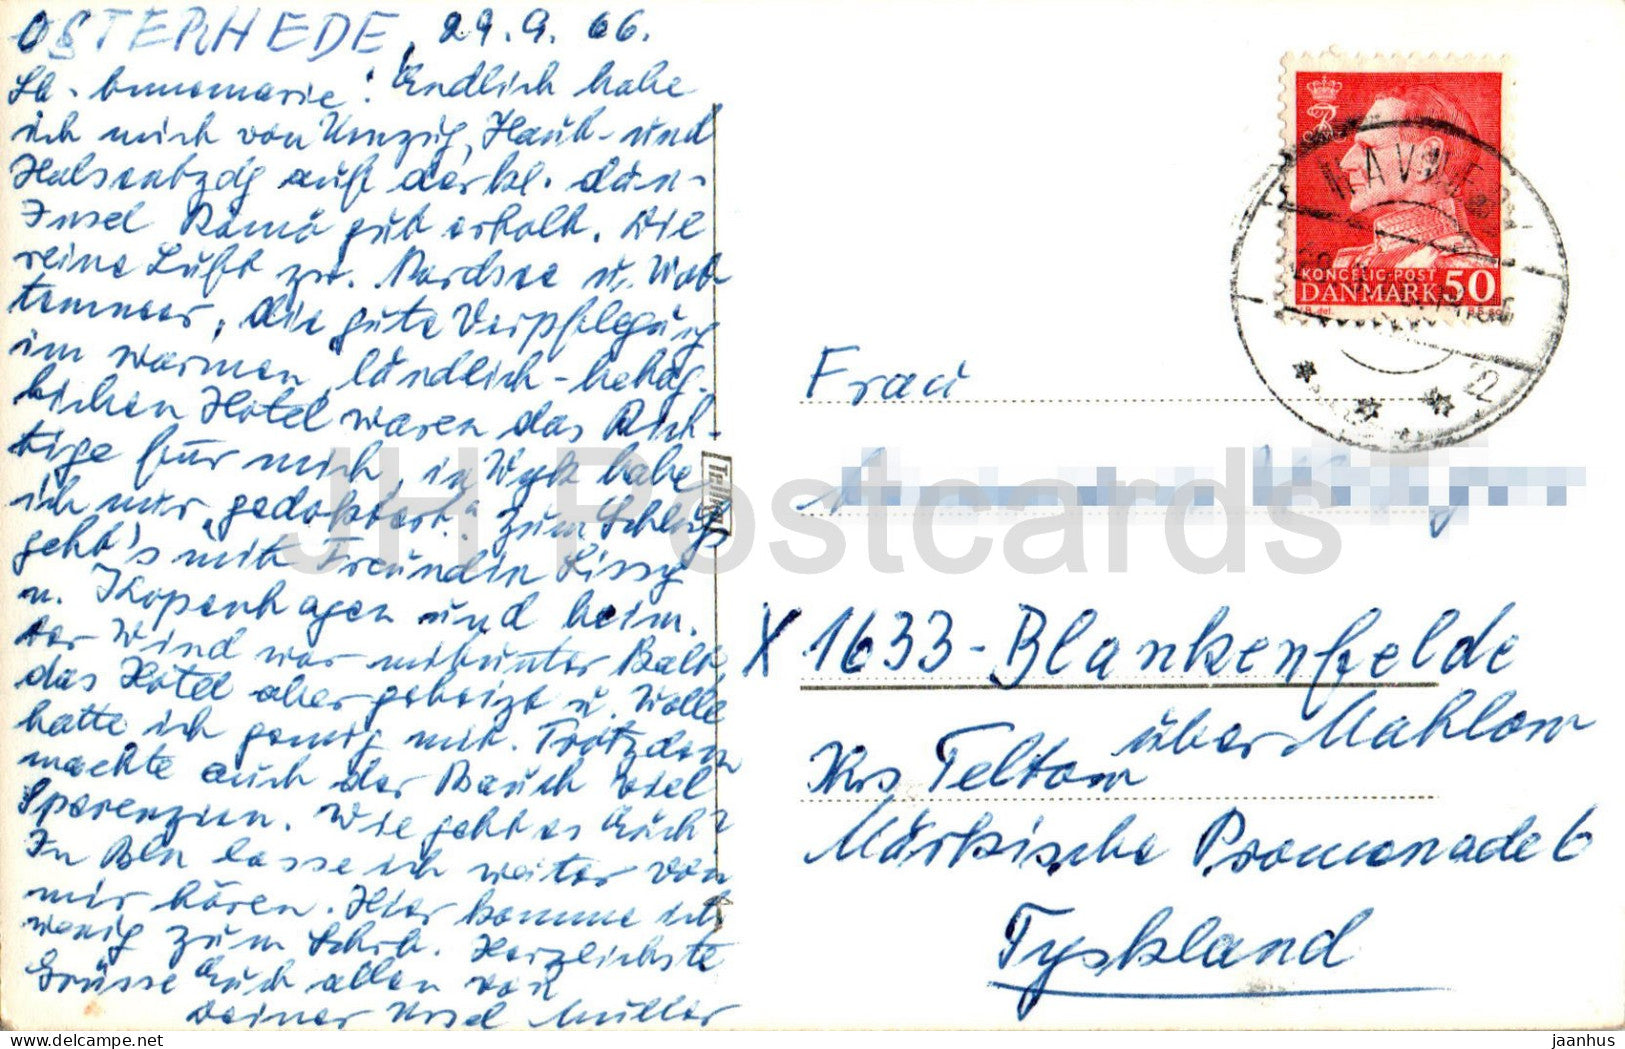 OSTERHEDE, 29.9.66.
Lb. Annemarie! Endlich habe
ich mich von Umzug, Haut- und
Halsentzdg auf der kl. dän.
Insel Römö gut erholt. Die
reine Luft zw. Nordsee u. Wat-
tenmeer, die gute Verpflegung
im warmen, ländlich-behag-
lichen Hotel waren das Rich-
tige für mich, in Wyk habe
ich nur "gedoktert." Zum Schluß
geht's mit Freundin Lissy
n. Kopenhagen und heim.
Der Wind war mitunter kalt,
das Hotel aber geheizt u. Wolle
hatte ich genug mit. Trotzdem
machte auch der Bauch viel
Sperenzien. Wie geht es Euch?
In Bln lasse ich weiter von
mir hören. Hier komme ich
wenig zum Schrb. Herzlichste
Grüsse Euch allen von
Deiner Ursel Müller
KONGELIG POST
DANMARK 50
Frau
X 1633-Blankenfelde
über Mahlow
Krs Teltow
Märkische Promenade 6
Tyskland
JH Postcards
HIPPOSTCARD.COM
jaanhus